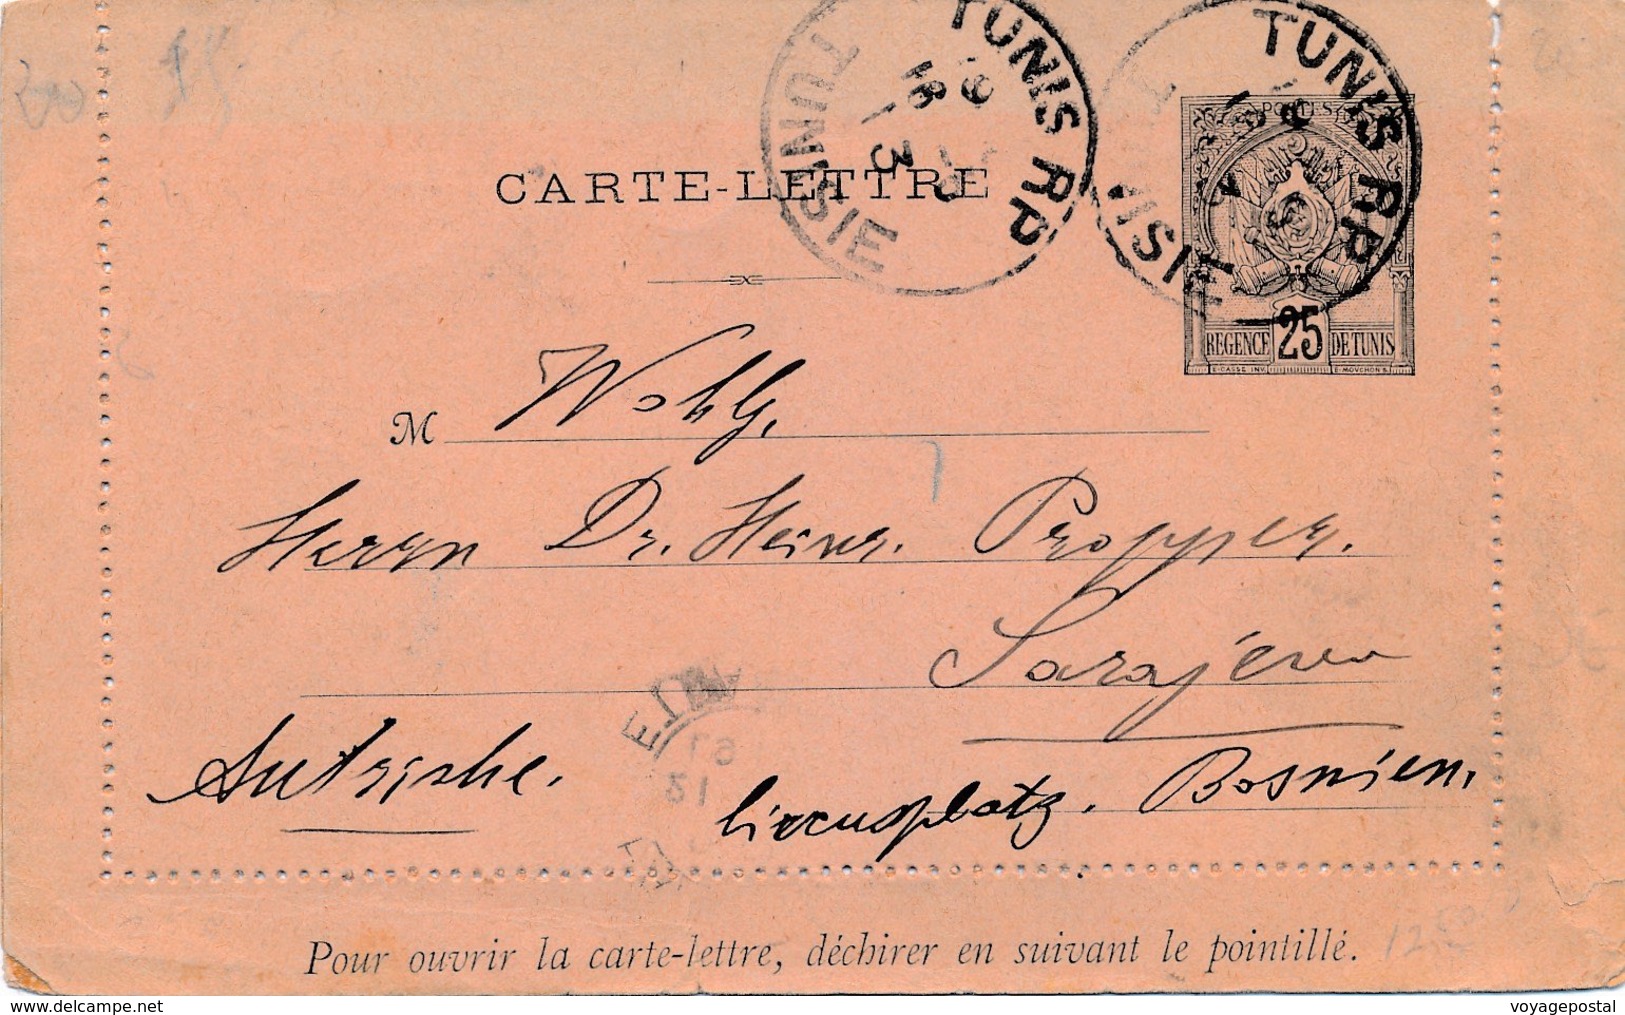 TUNIS RP
TUNISIE
18
3
TUNIS RP
POSTES
CARTE-LETTRE
REGENCE 25 DE TUNIS
E. CASSE INV. E. MOUCHON S.
M Wohlg.
Herrn Dr. Heinr. Propper.
Sarajevo
Autriche.
Circusplatz. Bosnien.
Pour ouvrir la carte-lettre, déchirer en suivant le pointillé.
1250
voyagepostal
www.delcampe.net